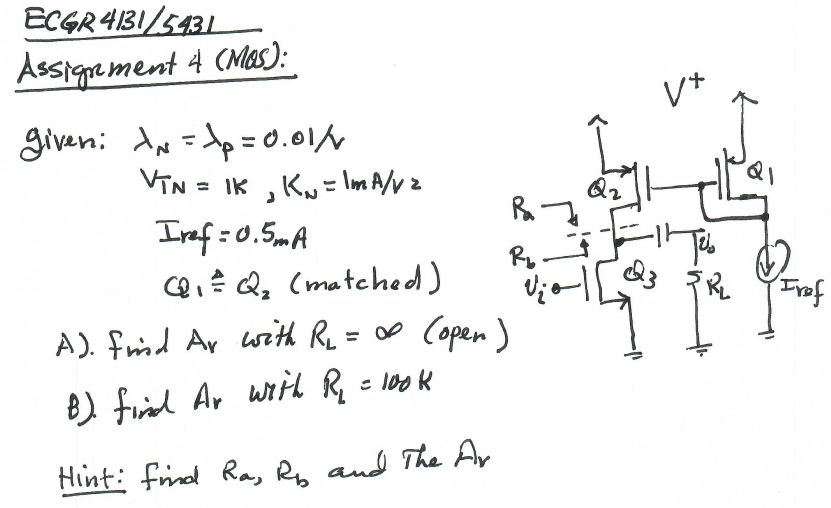 ECGR 4131/5431
Assignment 4 (MOS):
given: λN = λP = 0.01/V
VTN = 1K , KN = 1mA/V2
Iref = 0.5mA
Q1 ≜ Q2 (matched)
A). find Av with RL = ∞ (open)
B). find Av with RL = 100K
Hint: find Ra, Rb and The Av
V+
Q1
Q2
Ra
Rb
Vi
Q3
Vo
RL
Iref